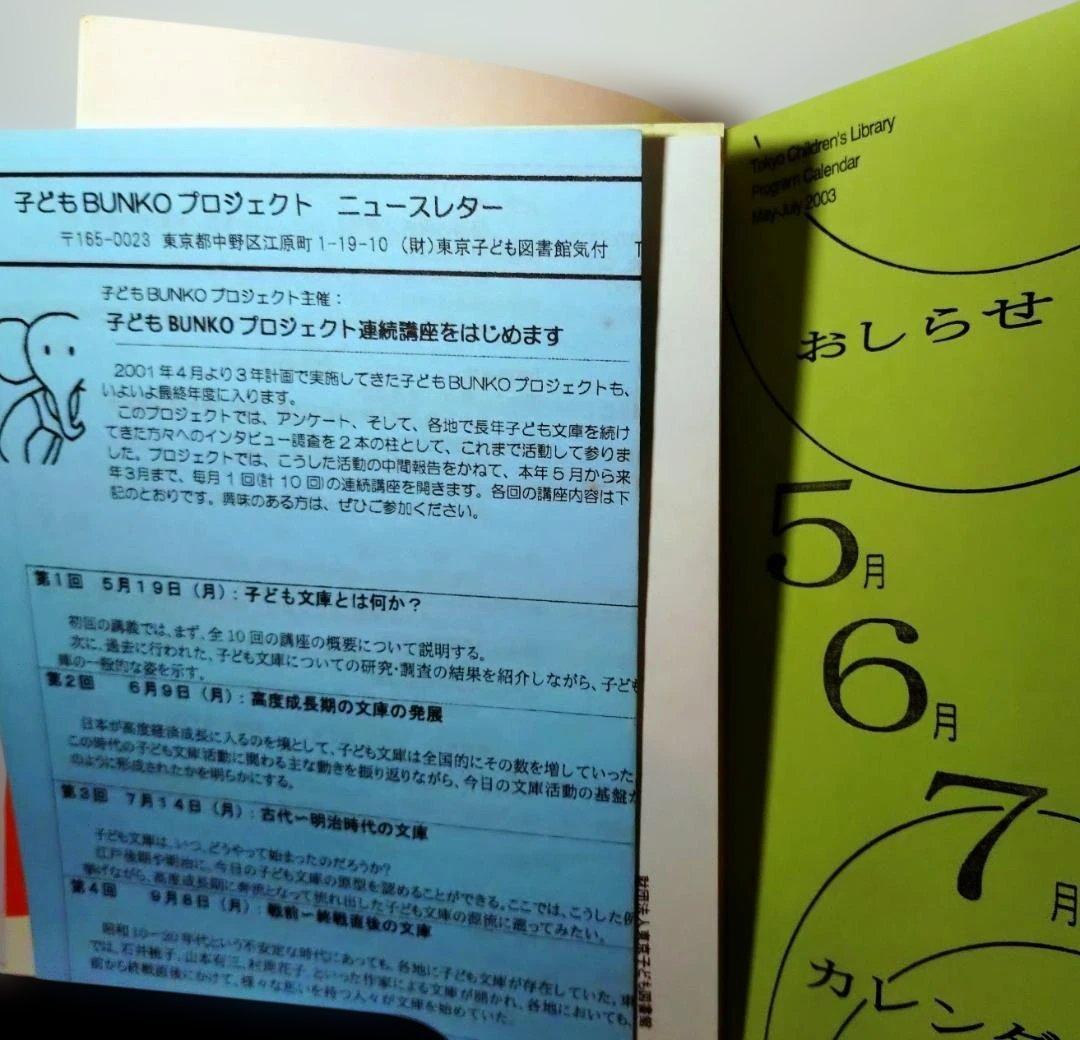 子どもBUNKOプロジェクト ニュースレター
〒165-0023 東京都中野区江原町1-19-10 (財)東京子ども図書館気付 T
子どもBUNKOプロジェクト主催：
子どもBUNKOプロジェクト連続講座をはじめます
2001年4月より3年計画で実施してきた子どもBUNKOプロジェクトも、
いよいよ最終年度に入ります。
このプロジェクトでは、アンケート、そして、各地で長年子ども文庫を続け
てきた方々へのインタビュー調査を2本の柱として、これまで活動して参りま
した。プロジェクトでは、こうした活動の中間報告をかねて、本年5月から来
年3月まで、毎月1回(計10回)の連続講座を開きます。各回の講座内容は下
記のとおりです。興味のある方は、ぜひご参加ください。
第1回 5月19日(月)：子ども文庫とは何か？
初回の講義では、まず、全10回の講座の概要について説明する。
次に、過去に行われた、子ども文庫についての研究・調査の結果を紹介しながら、子ども
庫の一般的な姿を示す。
第2回 6月9日(月)：高度成長期の文庫の発展
日本が高度経済成長に入るのを境として、子ども文庫は全国的にその数を増していった。
この時代の子ども文庫活動に関わる主な動きを振り返りながら、今日の文庫活動の基盤が
のように形成されたかを明らかにする。
第3回 7月14日(月)：古代ー明治時代の文庫
子ども文庫は、いつ、どうやって始まったのだろうか？
江戸後期や明治に、今日の子ども文庫の原型を認めることができる。ここでは、こうした例
挙げながら、高度成長期に奔流となって流れ出した子ども文庫の源流に遡ってみたい。
第4回 9月8日(月)：戦前ー終戦直後の文庫
昭和10ー20年代という不安定な時代にあっても、各地に子ども文庫が存在していた。東
では、石井桃子、山本有三、村岡花子、といった作家による文庫が開かれ、各地においても、
前から終戦直後にかけて、様々な思いを持つ人々が文庫を始めていた。
財団法人東京子ども図書館
Tokyo Children's Library
Program Calendar
May-July 2003
おしらせ
5月
6月
7月
カレンダ